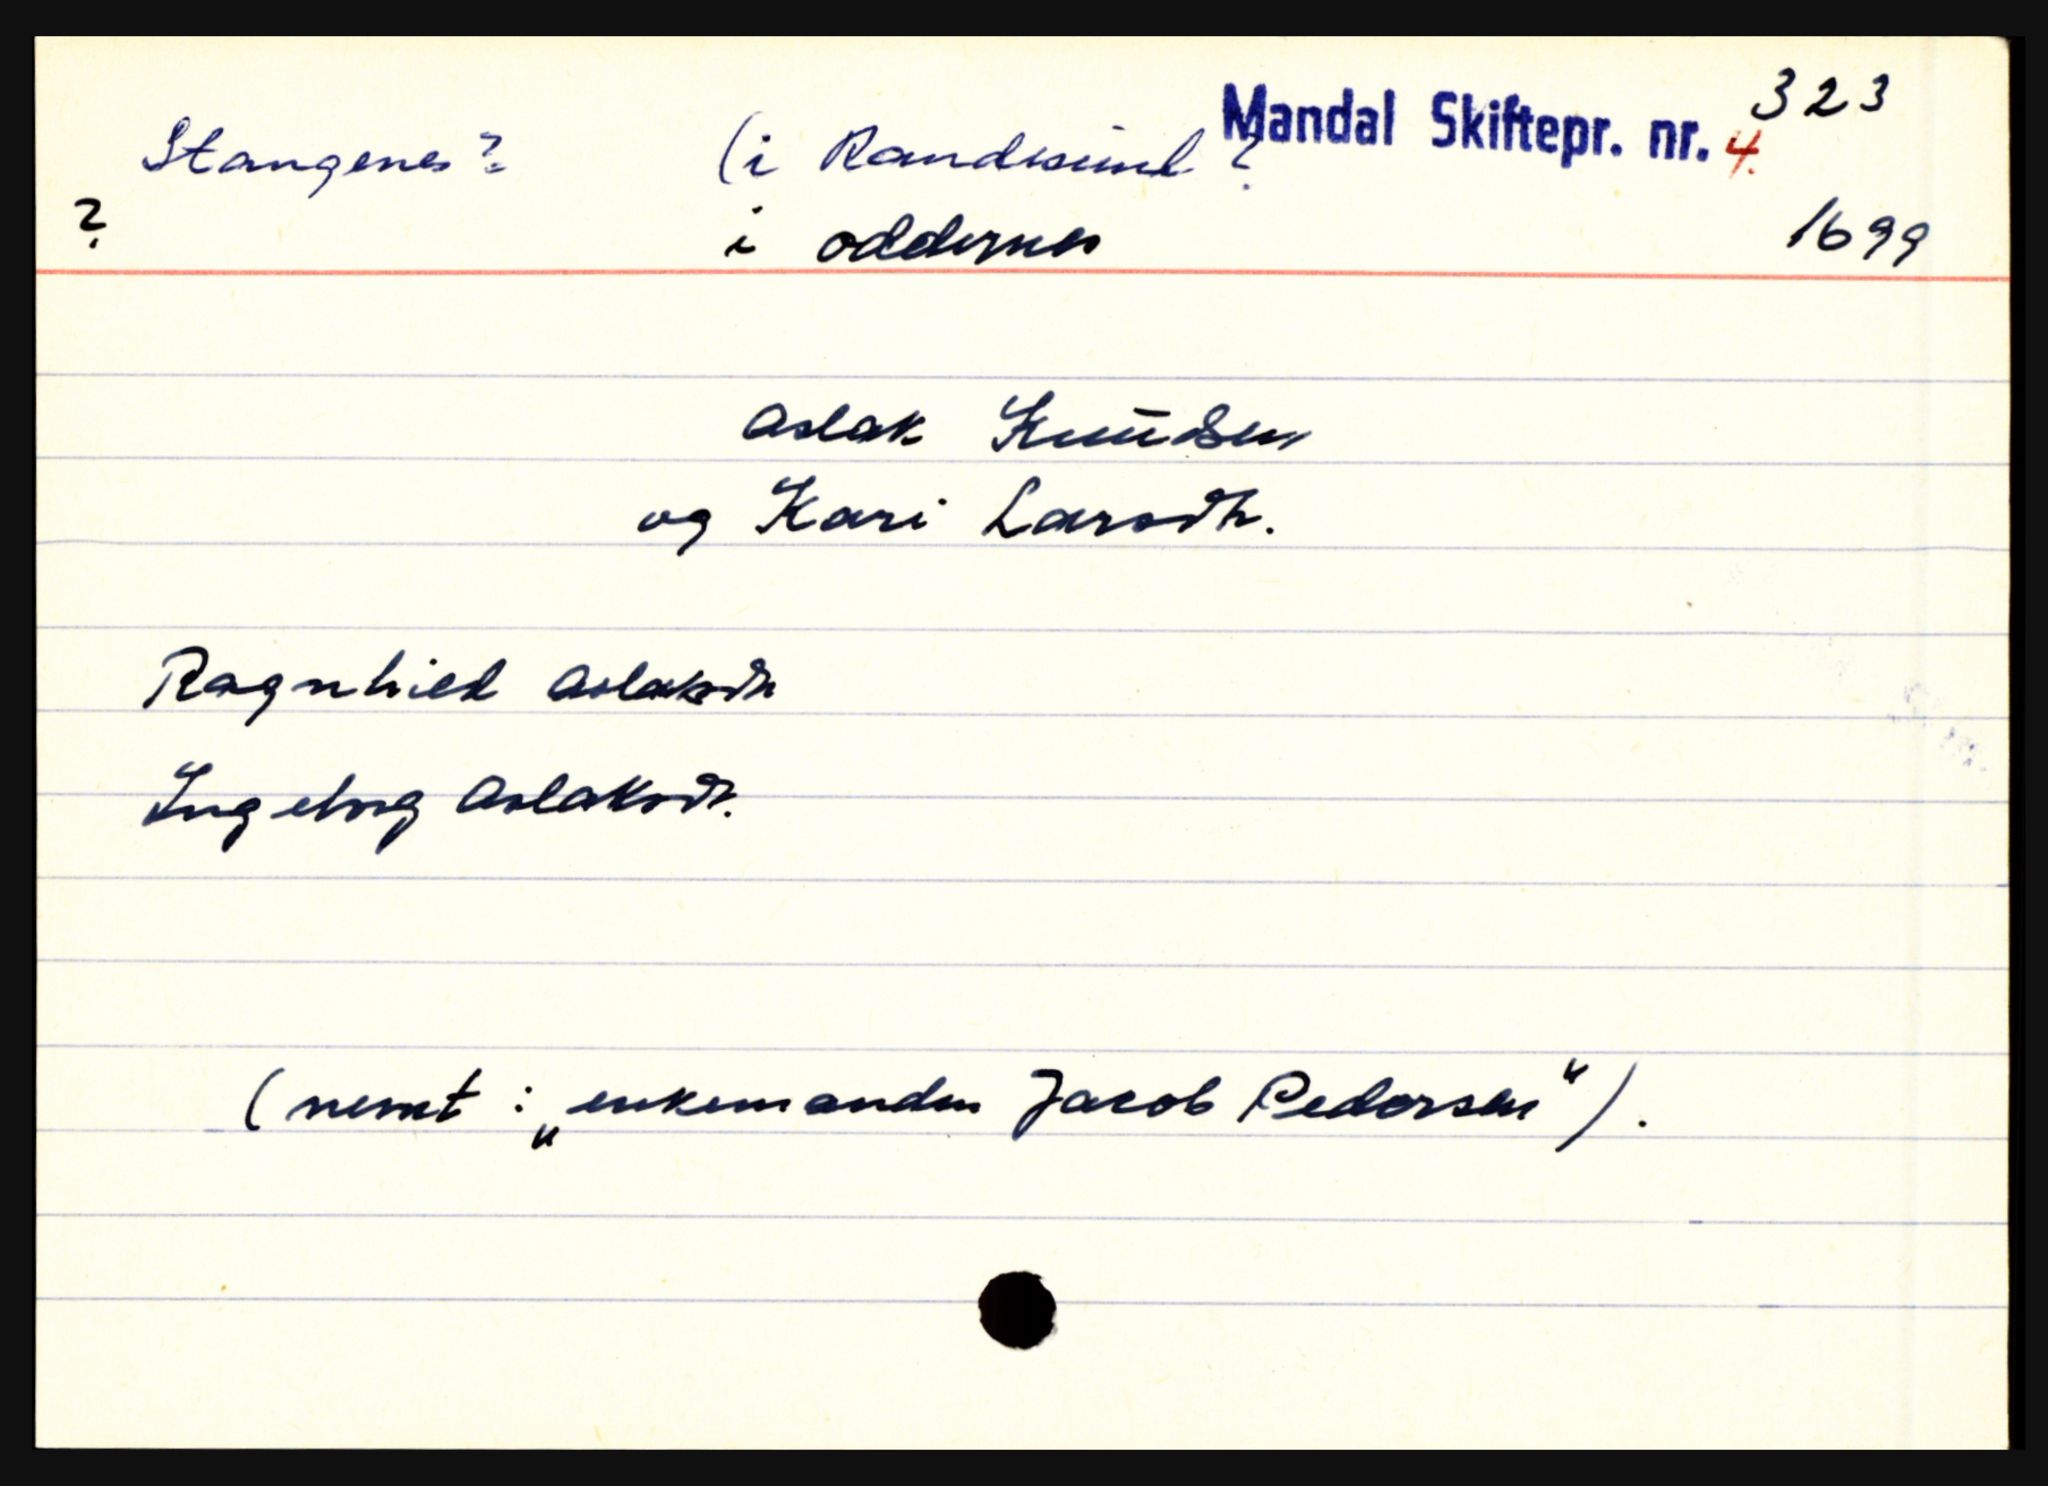 323
Stangenes? (i Randesund ? Mandal Skiftepr. nr. 4.
? i oddernes 1699
Aslak Knudsen
og Kari Larsdtr.
Ragnhild Aslaksdtr
Ingeborg Aslaksdtr.
(nemt : „enkemanden Jacob Pedersen“).